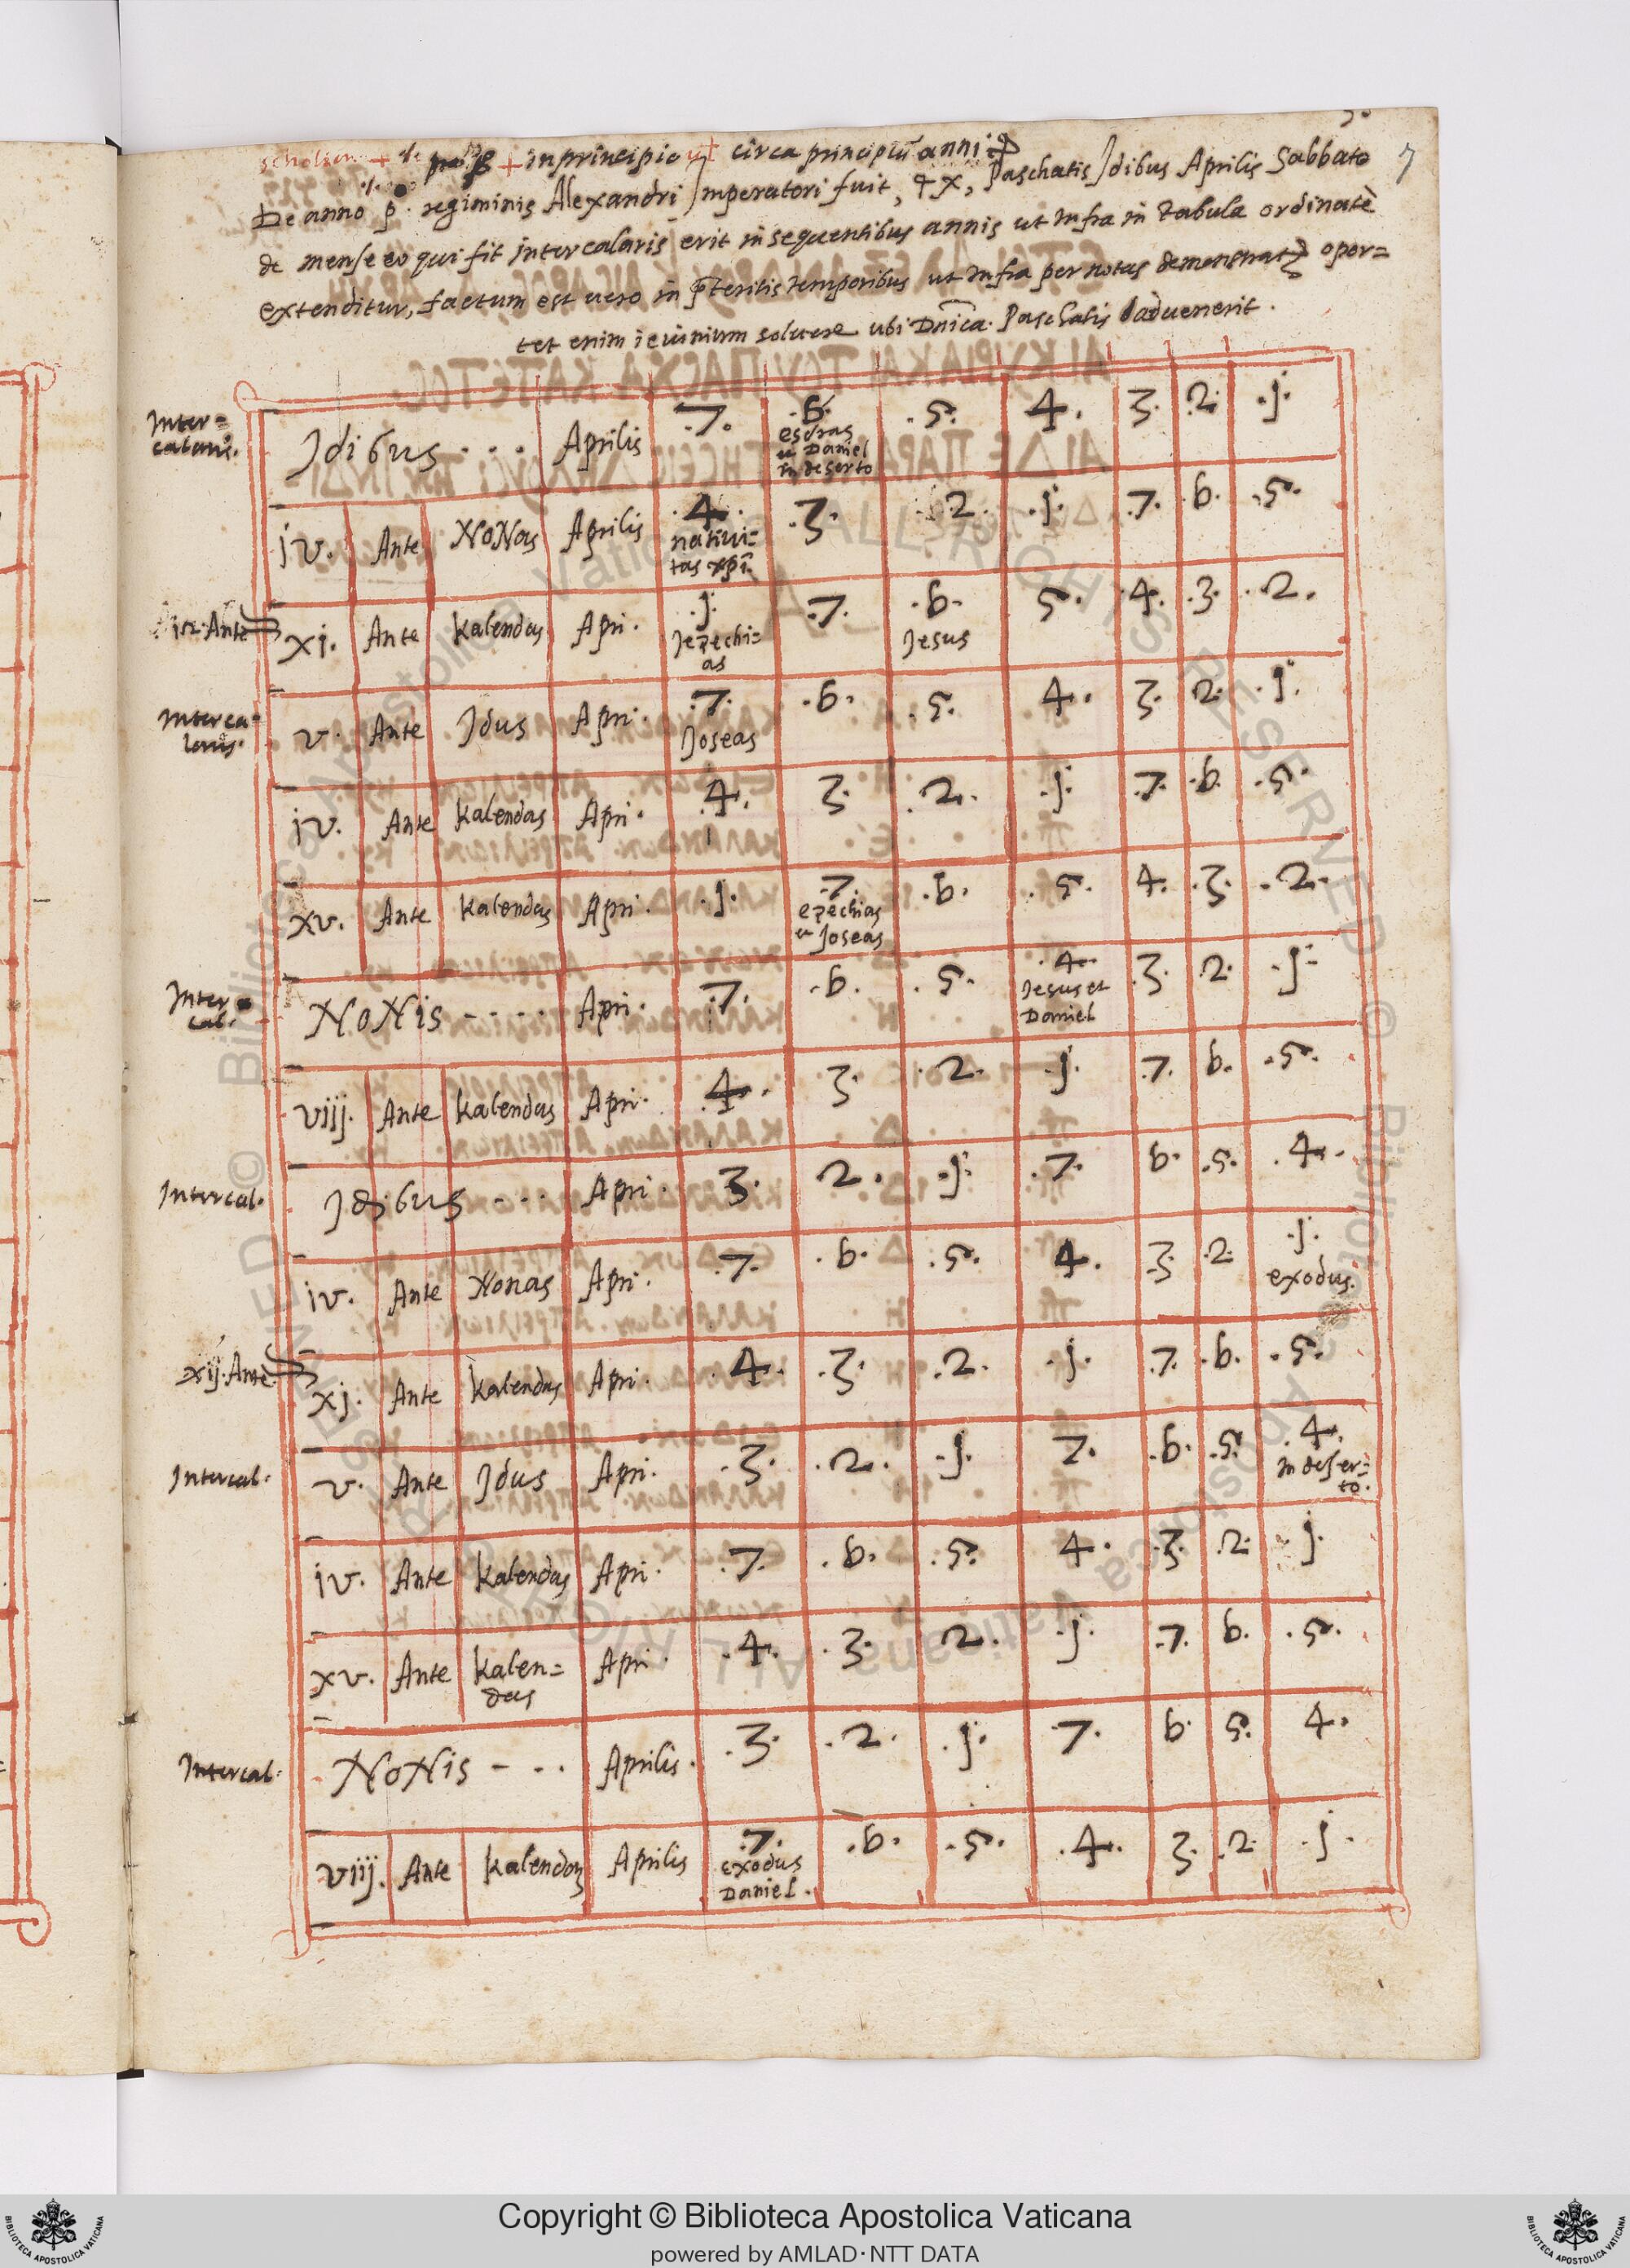 scholion + + in principio vel circa principiũ anni
De anno p. regiminis Alexandri Imperatori fuit, Paschatis Idibus Aprilis Sabbato 7
de mense eo qui fit intercalaris erit in sequentibus annis ut infra in tabula ordinatè
extenditur, factum est uero in p̃teritis temporibus ut infra per notas demonstrat opor=
tet enim ieiunium soluere ubi Dñica. Paschatis aduenerit.
Inter=
calaris. Idibus - - - Aprilis .7. .6. esdras u Daniel in deserto .5. 4. 3. .2. .j.
iv. Ante NoNas Aprilis .4. natiui=tas xpi. .3. .2. .j. .7. .6. .5.
Ante xj. Ante Kalendas Apri. .j. Iezechi=as .7. .6. Jesus 5. .4. .3. .2.
Interca=
laris. v. Ante Idus Apri. .7. Joseas .6. .5. 4. 3. .2. .j.
iv. Ante Kalendas Apri. .4. 3. .2. .j. .7. .6. .5.
xv. Ante Kalendas Apri. .j. .7. ezechias u Joseas .6. .5. 4. .3. .2.
Inter=
cal. NoNis - - - - Apri. .7. .6. .5. .4. Jesus et Daniel 3. .2. .j.
viij. Ante Kalendas Apri. .4. 3. .2. .j. .7. 6. .5.
Intercal. Idibus - - - Apri. 3. 2. .j. .7. 6. .5. .4.
iv. Ante Nonas Apri. .7. .6. .5. 4. .3. .2. .j. exodus.
xij. Ante xj. Ante Kalendas Apri. .4. .3. .2. .j. .7. .6. .5.
Intercal. v. Ante Idus Apri. .3. .2. .j. 7. .6. .5. .4. in deser=to.
iv. Ante Kalendas Apri. .7. .6. .5. 4. .3. .2. .j.
xv. Ante Kalen=das Apri. .4. .3. .2. .j. .7. 6. .5.
Intercal. NoNis - - - Aprilis. .3. .2. .j. 7. 6. 5. 4.
viij. Ante Kalendas Aprilis .7. exodus Daniel. .6. .5. .4. 3. .2. .j.
Copyright © Biblioteca Apostolica Vaticana
powered by AMLAD·NTT DATA